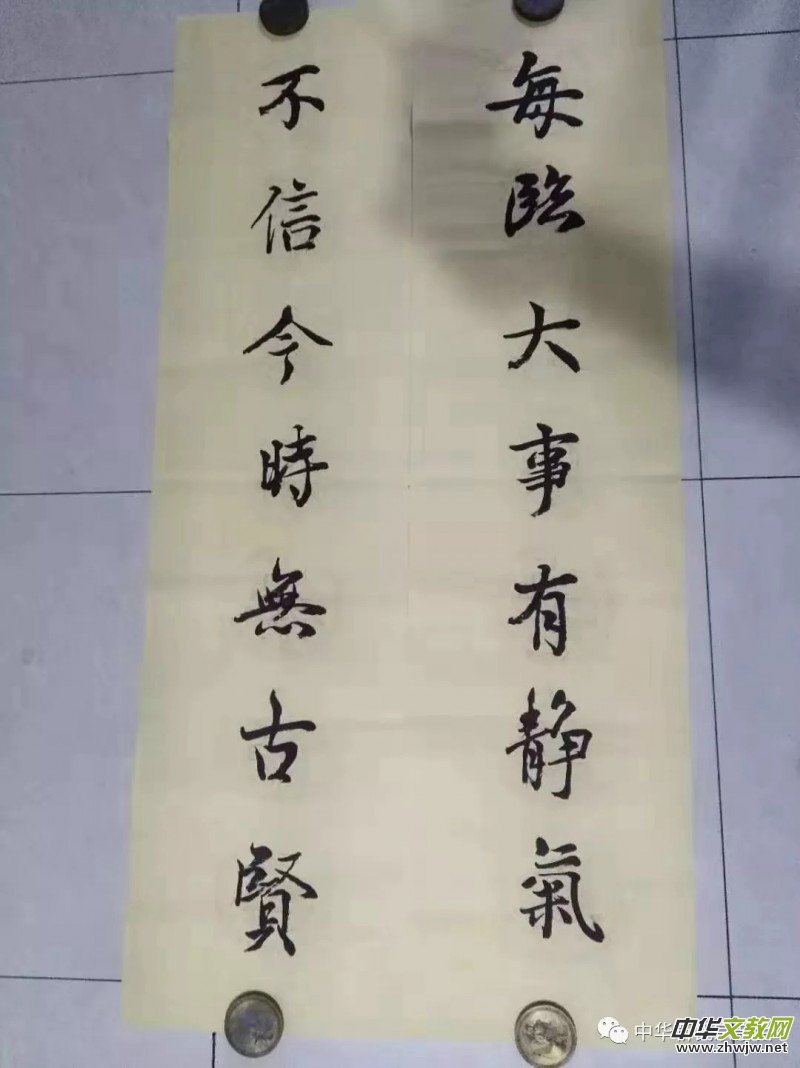 每臨大事有静氣
不信今時無古賢
中华
中华文教网
www.zhwjw.net